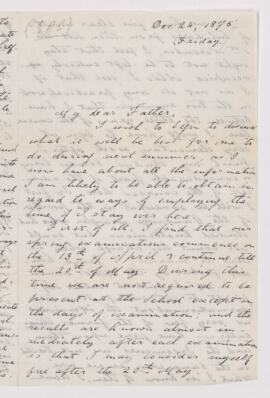 Dec 24, 1875
Friday
My dear Father,
I wish to begin to discuss
what it will be best for me to
do during next summer as I
now have about all the information
I am likely to be able to obtain in
regard to ways of employing the
time if I stay over here.
First of all, I find that our
spring examinations commence on
the 13th of April & continue till
the 20th of May. During this
time we are not required to be
present at the School except on
the days of examination, and the
results are known almost im-
mediately after each examination
so that I may consider myself
free after the 20th May.